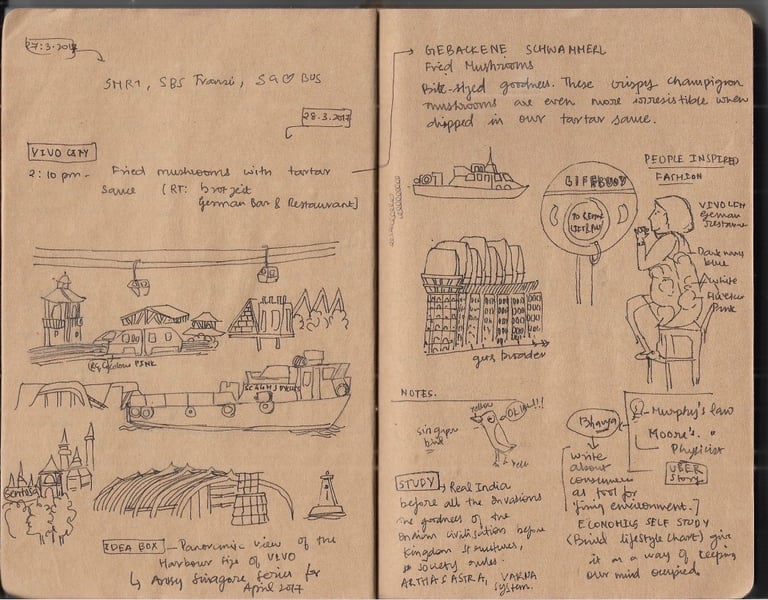 27.3.2017
SMRT, SBS Transi, SG BUS
28.3.2017
VIVO CITY
2:10 pm - Fried mushrooms with tartar
sauce (RT: brotzeit
German Bar & Restaurant]
PINK
Sentosa
IDEA BOX - Panoramic view of the
Harbour side of VIVO
↳ Artsy Singapore Series for
April 2017
GEBACKENE SCHWAMMERL
Fried Mushrooms
Bite-sized goodness. These crispy champignon
mushrooms are even more irresistible when
dipped in our tartar sauce.
PEOPLE INSPIRED
FASHION
VIVO
German
Dark navy
blue
White
Pink
gets broader
NOTES:
yellow
Singapore
bird
STUDY → Real India
before all the invasions
the goodness of the
civilisation before
Kingdom structures,
society rules.
ARTHASASTRA, VARNA
System.
Bhavya
write
about
consumers
as tool for
environment.]
ECONOMICS SELF STUDY
(Build lifestyle chart) give
it as a way of keeping
our mind occupied.
Murphy's law
Moore's.
Physicist
UBER
Story